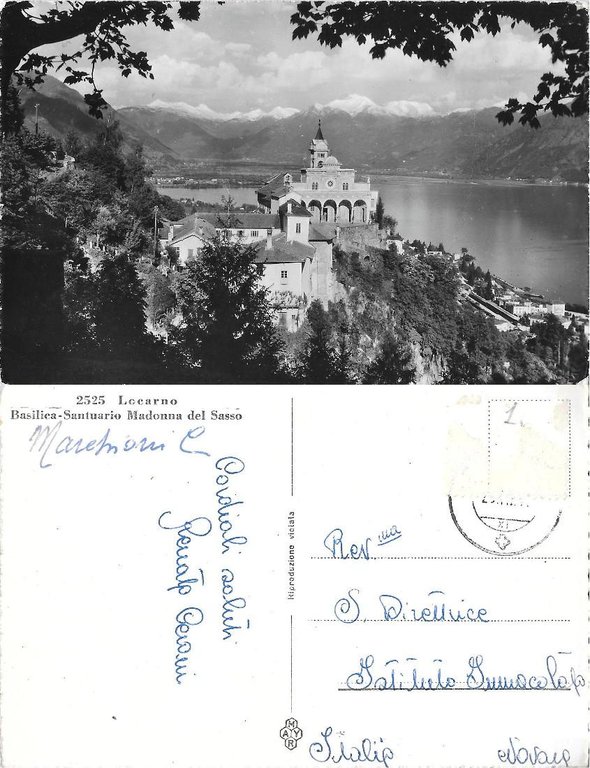 2525 Locarno
Basilica-Santuario Madonna del Sasso
Marchioni C
Cordiali saluti
Renato Cerani
Riproduzione vietata
1.
XI
Rev.ma
S. Direttrice
Istituto Immacolata
Italia Novara
MAYR